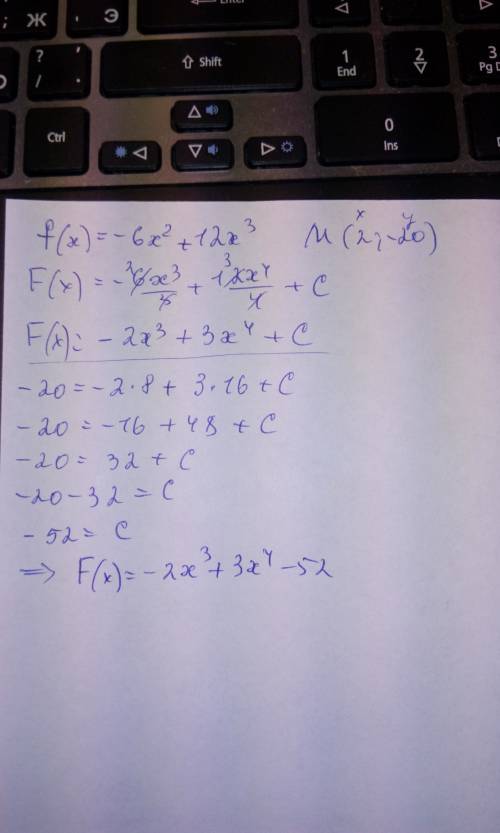 Enter
; Ж ' Э
? ' / .
⇧ Shift
1 End
2
3 Pg D
Ctrl
0 Ins
f(x) = -6x² + 12x³ M(2; -20)
x y
F(x) = -6x³/3 + 12x⁴/4 + C
2 3
F(x) = -2x³ + 3x⁴ + C
-20 = -2·8 + 3·16 + C
-20 = -16 + 48 + C
-20 = 32 + C
-20-32 = C
-52 = C
⇒ F(x) = -2x³ + 3x⁴ - 52